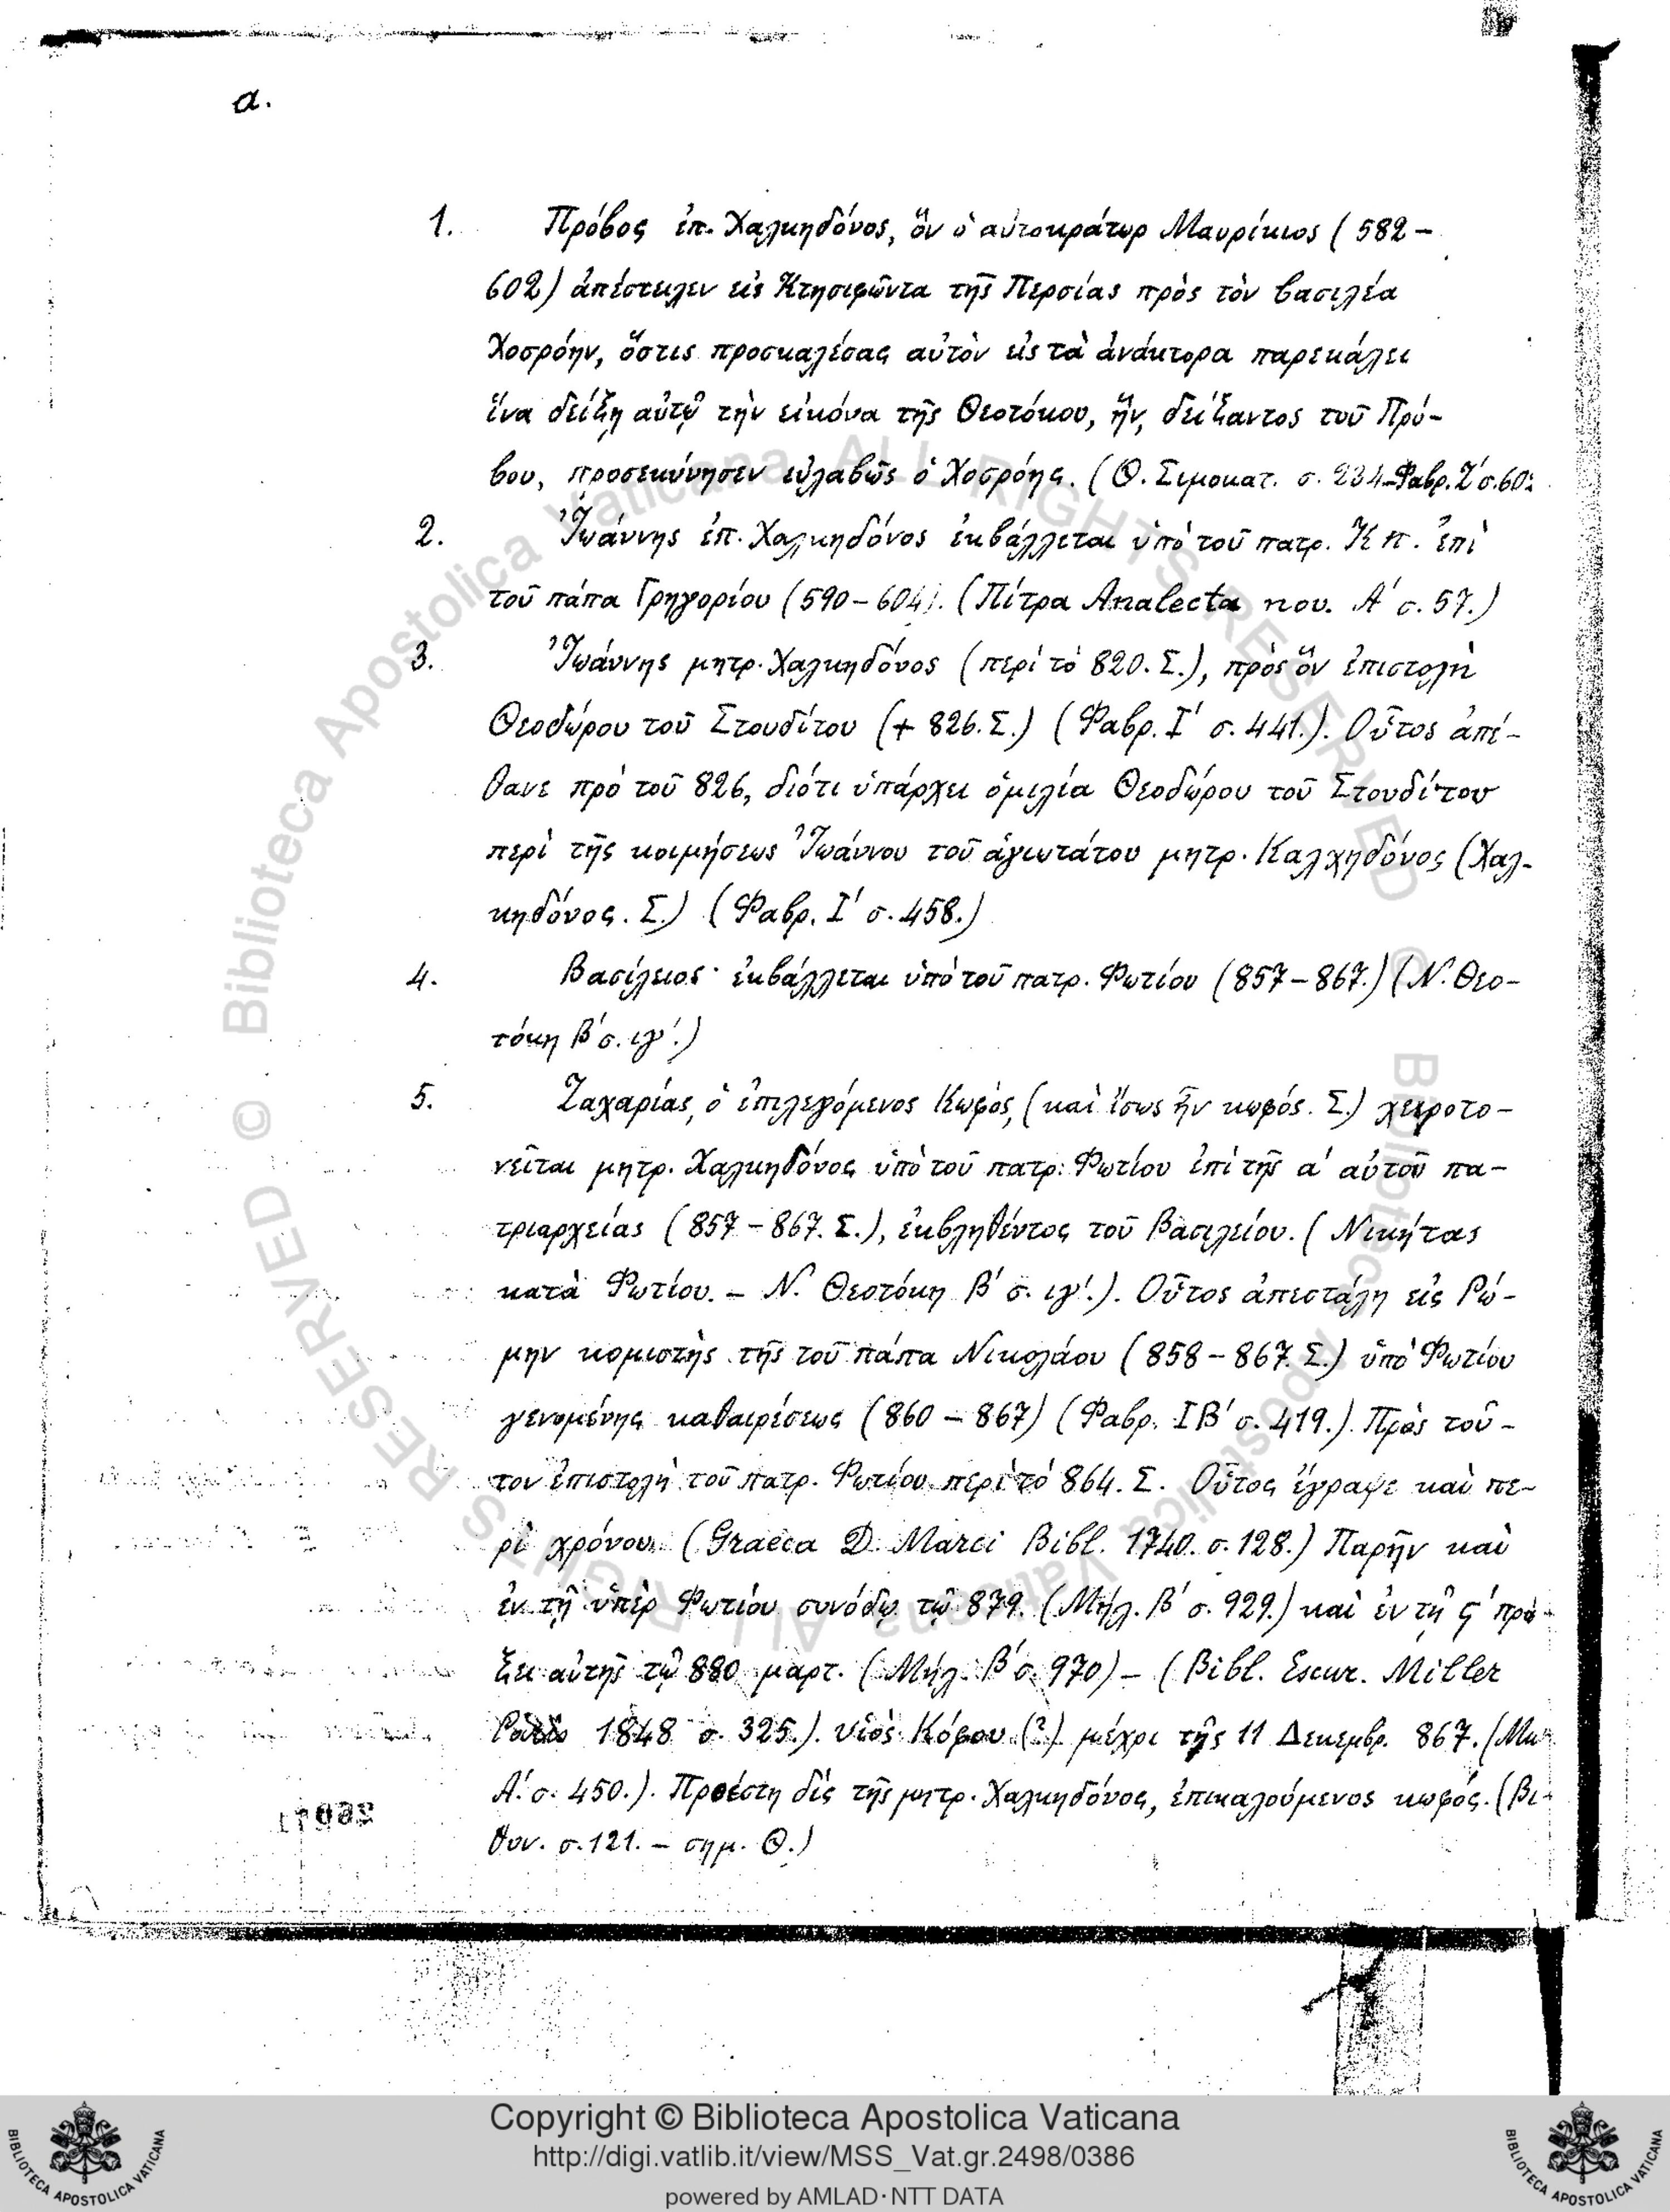 α.
1. Πρόβος ἐπ. Χαλκηδόνος, ὃν ὁ αὐτοκράτωρ Μαυρίκιος (582 –
602) ἀπέστειλεν εἰς Κτησιφῶντα τῆς Περσίας πρὸς τὸν βασιλέα
Χοσρόην, ὅστις προσκαλέσας αὐτὸν εἰς τὰ ἀνάκτορα παρεκάλει
ἵνα δείξῃ αὐτῷ τὴν εἰκόνα τῆς Θεοτόκου, ἣν, δείξαντος τοῦ Πρό-
βου, προσεκύνησεν εὐλαβῶς ὁ Χοσρόης. (Θ. Σιμοκατ. σ. 234 – Φαβρ. Ζ΄ σ. 60
2. Ἰωάννης ἐπ. Χαλκηδόνος ἐκβάλλεται ὑπὸ τοῦ πατρ. Κπ. ἐπὶ
τοῦ πάπα Γρηγορίου (590 – 604). (Πίτρα Analecta nov. Α΄ σ. 57.)
3. Ἰωάννης μητρ. Χαλκηδόνος (περὶ τὸ 820. Σ.), πρὸς ὃν ἐπιστολὴ
Θεοδώρου τοῦ Στουδίτου (+ 826. Σ.) (Φαβρ. Ι΄ σ. 441.). Οὗτος ἀπέ-
θανε πρὸ τοῦ 826, διότι ὑπάρχει ὁμιλία Θεοδώρου τοῦ Στουδίτου
περὶ τῆς κοιμήσεως Ἰωάννου τοῦ ἁγιωτάτου μητρ. Καλχηδόνος (Χαλ-
κηδόνος. Σ.) (Φαβρ. Ι΄ σ. 458.)
4. Βασίλειος· ἐκβάλλεται ὑπὸ τοῦ πατρ. Φωτίου (857 – 867.) (Ν. Θεο-
τόκη Β΄ σ. ιγ΄.)
5. Ζαχαρίας, ὁ ἐπιλεγόμενος Κωφός, (καὶ ἴσως ἦν κωφός. Σ.) χειροτο-
νεῖται μητρ. Χαλκηδόνος ὑπὸ τοῦ πατρ. Φωτίου ἐπὶ τῆς α΄ αὐτοῦ πα-
τριαρχείας (857 – 867. Σ.), ἐκβληθέντος τοῦ Βασιλείου. (Νικήτας
κατὰ Φωτίου. – Ν. Θεοτόκη Β΄ σ. ιγ΄.). Οὗτος ἀπεστάλη εἰς Ρώ-
μην κομιστὴς τῆς τοῦ πάπα Νικολάου (858 – 867. Σ.) ὑπὸ Φωτίου
γενομένης καθαιρέσεως (860 – 867) (Φαβρ. ΙΒ΄ σ. 419.). Πρὸς τοῦ-
τον ἐπιστολὴ τοῦ πατρ. Φωτίου περὶ τὸ 864. Σ. Οὗτος ἔγραψε καὶ πε-
ρὶ χρόνου. (Graeca D. Marci Bibl. 1740. σ. 128.) Παρῆν καὶ
ἐν τῇ ὑπὲρ Φωτίου συνόδῳ τῷ 879. (Μήλ. Β΄ σ. 929.) καὶ ἐν τῇ ς΄ πρά-
ξει αὐτῆς τῷ 880 μαρτ. (Μήλ. Β΄ σ. 970) – (Bibl. Escur. Miller
1848 σ. 325.). υἱὸς Κόφου (?) μέχρι τῆς 11 Δεκεμβρ. 867. (Μυ
Α΄. σ. 450.). Προέστη δὶς τῆς μητρ. Χαλκηδόνος, ἐπικαλούμενος κωφός. (Βι-
θυν. σ. 121. – σημ. Θ.)
Copyright © Biblioteca Apostolica Vaticana
http://digi.vatlib.it/view/MSS_Vat.gr.2498/0386
powered by AMLAD·NTT DATA